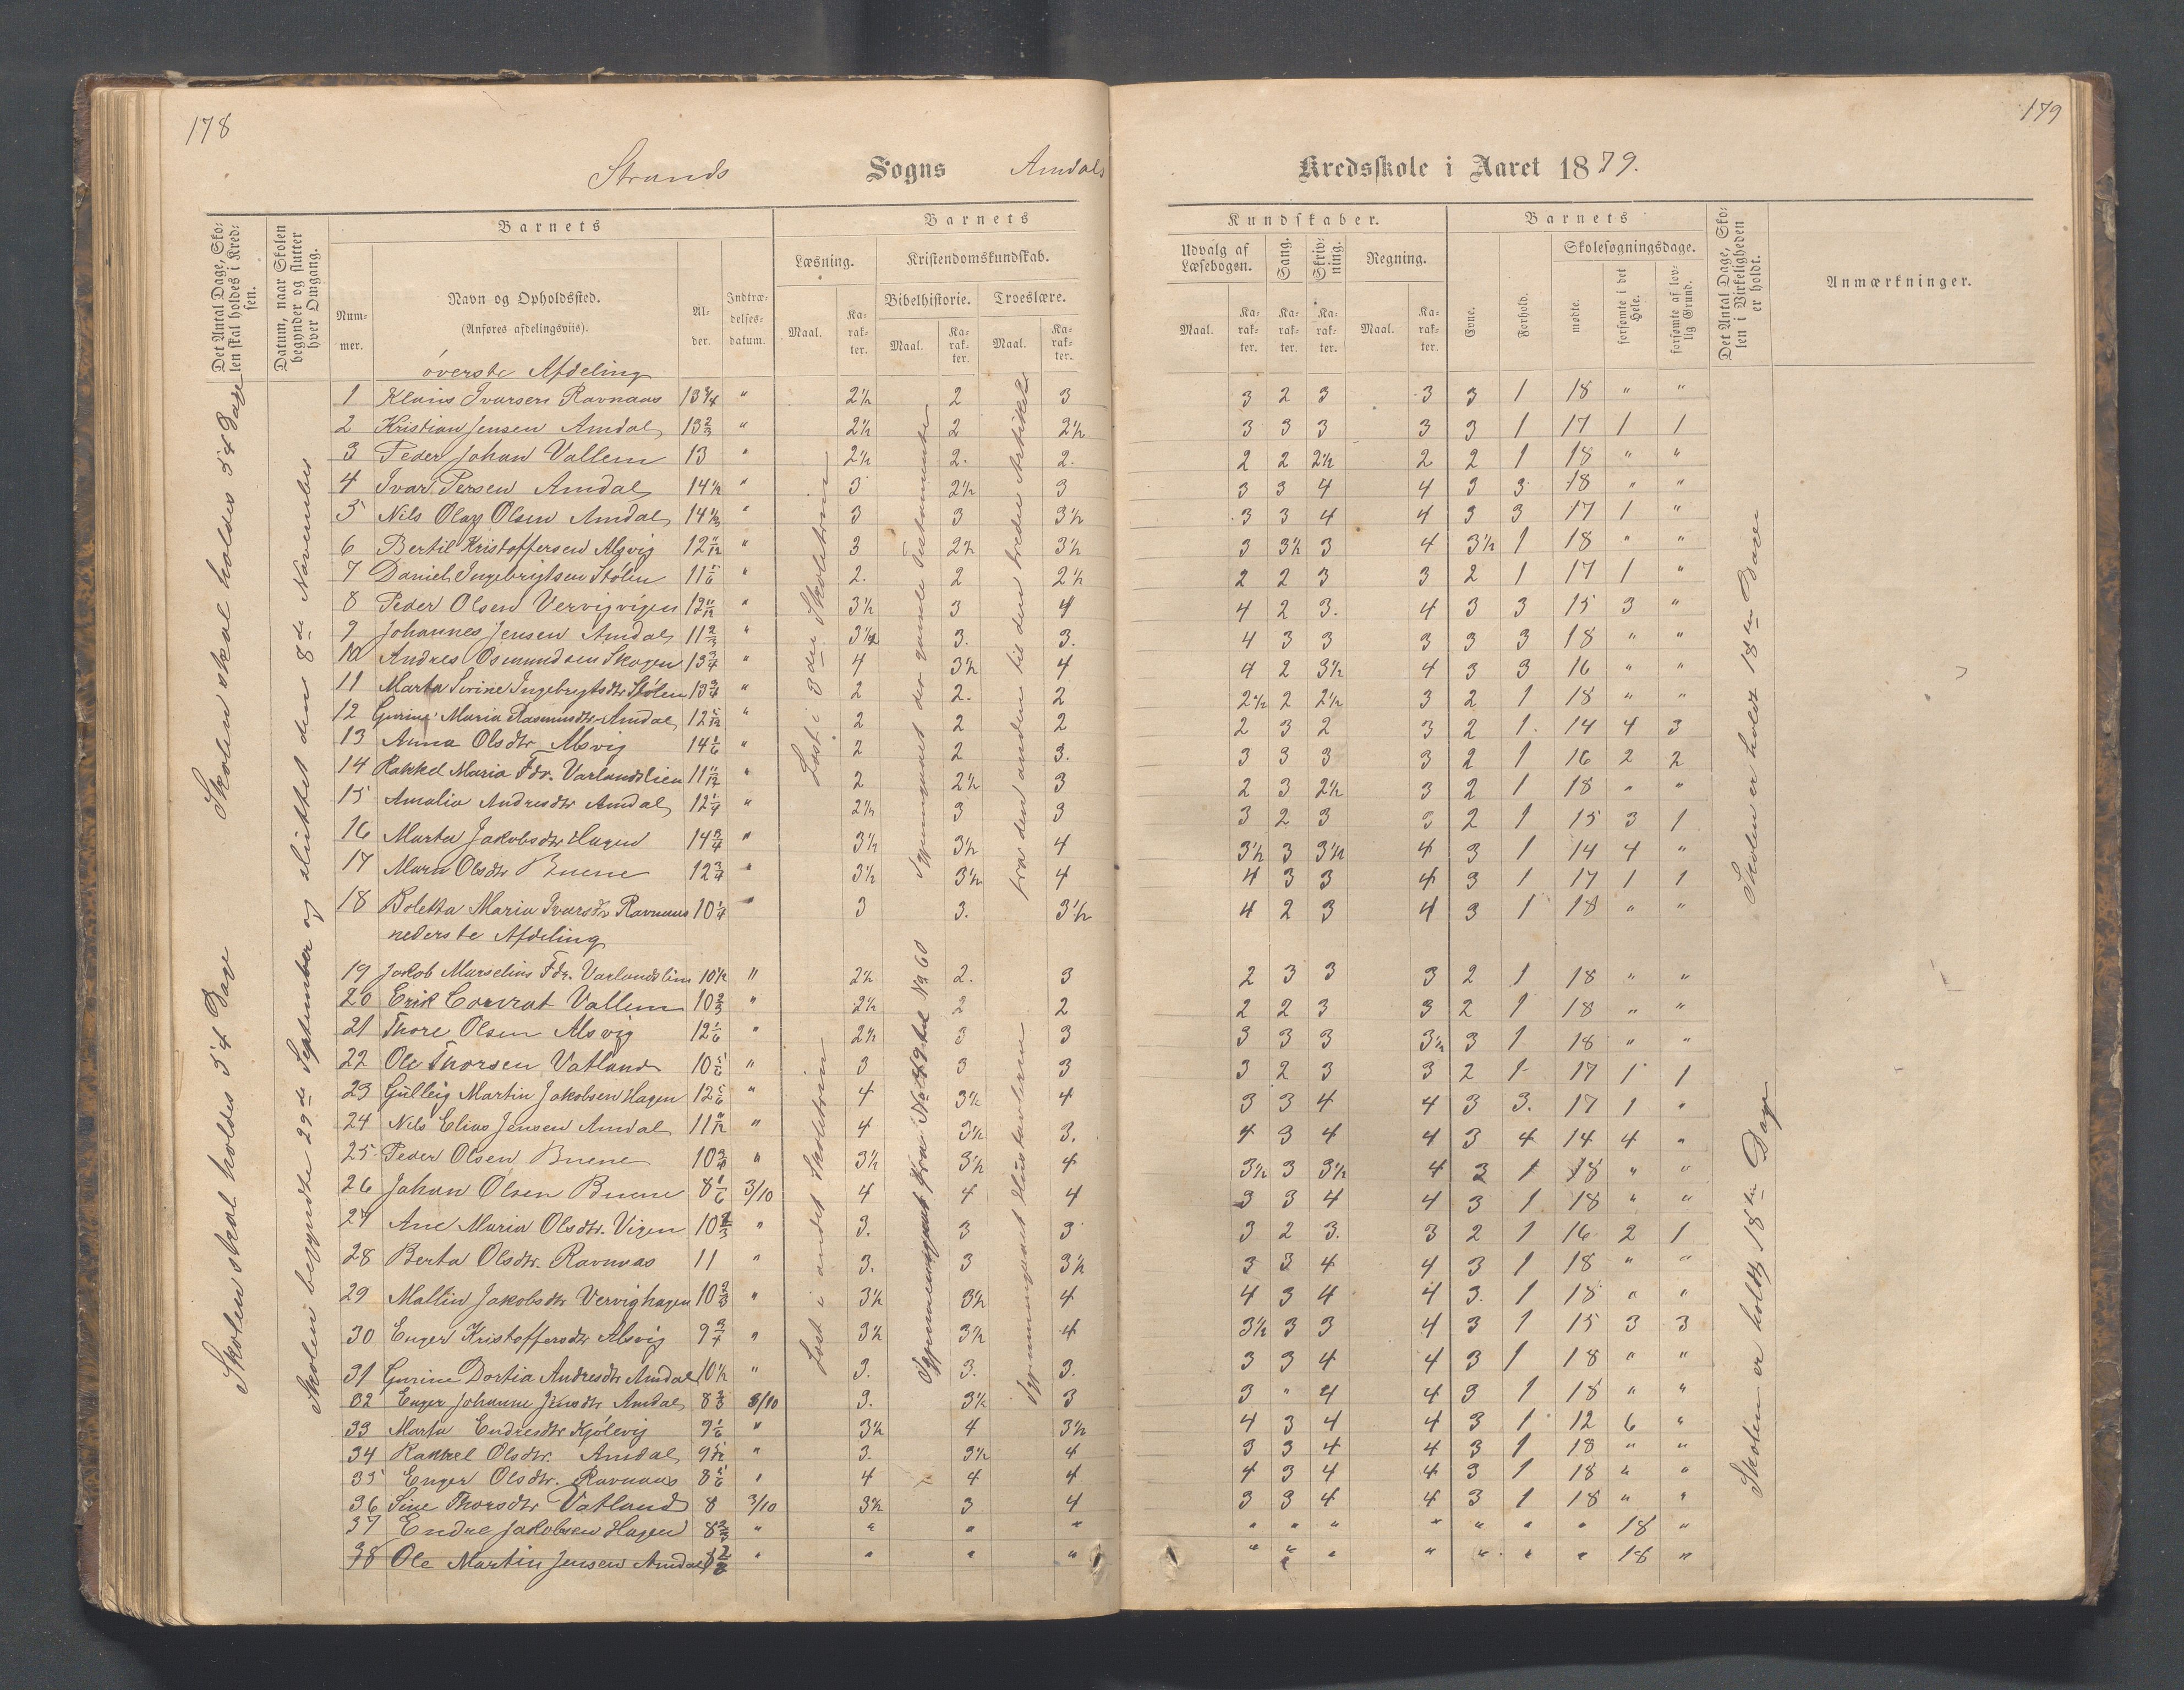 178
179
Strands Sogns Amdals Kredsskole i Aaret 1879.
Det Antal Dage, Skolen skal holdes i Kredsen.
Datum, naar Skolen begynder og slutter hver Omgang.
Barnets
Nummer.
Navn og Opholdssted. (Anføres afdelingsviis).
Alder.
Indtrædelsesdatum.
Barnets Kundskaber.
Læsning.
Maal. Karakter.
Kristendomskundskab.
Bibelhistorie. Troeslære.
Maal. Karakter. Maal. Karakter.
Udvalg af Læsebogen.
Maal. Karakter.
Sang. Karakter.
Skrivning. Karakter.
Regning.
Maal. Karakter.
Barnets
Evne. Forhold.
Skolesøgningsdage.
mødte. forsømte i det Hele. forsømte af lovlig Grund.
Det Antal Dage, Skolen i Virkeligheden er holdt.
Anmærkninger.
Skolen skal holdes 54 Dage
Skolen skal holdes 54 Dage
Skolen begyndte 29de September og sluttet den 8de November
Læst i 3die Skoletrin
Læst i andet Skoletrin
Igjennemgaaet det gamle Testamente
Igjennemgaaet fra No 49 til No 60
fra den anden til den tredie Artikel
Igjennemgaaet Hustavlerne
Skolen er holdt 18ten Dage
Skolen er holdt 18ten Dage
øverste Afdeling
1 Klaus Ivarsen Ravnaas 13 3/4 " 2½ 2 3 3 2 3 3 3 1 18 " "
2 Kristian Jensen Amdal 13 2/3 " 2½ 2 2½ 3 3 3 3 3 1 17 1 1
3 Peder Johan Vallem 13 " 2½ 2. 2. 2 2 2½ 2 2 1 18 " "
4 Ivar Persen Amdal 14½ " 3 2½ 3 3 3 4 4 3 3 18 " "
5 Nils Olay Olsen Amdal 14 1/3 " 3 3 3½ 3 3 4 4 3 3 17 1 "
6 Bertil Kristoffersen Alsvig 12 11/12 " 3 2½ 3½ 3 3½ 3 4 3½ 1 18 " "
7 Daniel Ingebrigtsen Stølen 11 5/6 " 2. 2 2½ 2 2 3 3 2 1 17 1 "
8 Peder Olsen Vervigvigen 12 11/12 " 3½ 3 4 4 2 3. 4 3 3 15 3 "
9 Johannes Jensen Amdal 11 2/3 " 3½ 3. 3. 4 3 3 3 3 3 18 " "
10 Andres Osmundsen Skogen 13 3/4 " 4 3½ 4 4 2 3½ 4 3 3 16 " "
11 Marta Serine Ingebrigtsdtr Stølen 13 3/4 " 2 2. 2 2½ 2 2½ 3 2 1 18 " "
12 Gurine Maria Rasmusdtr Amdal 12 5/12 " 2 2 2 2 3 2 3 2 1. 14 4 3
13 Anna Olsdtr Alsvig 14 1/6 " 2 2 3. 3 3 3 3 2 1 16 2 2
14 Rakkel Maria Fdr. Varlandslien 11 11/12 " 2 2½ 3 2 3 2½ 3 2 1 18 " "
15 Amalia Andresdtr Amdal 12 1/4 " 2½ 3 3 3 2 3 3 2 1 15 3 1
16 Marta Jakobsdtr Hagen 14 3/4 " 3½ 3½ 4 3½ 3 3½ 4 3 1 14 4 "
17 Maren Olsdtr Buene 12 3/4 " 3½ 3½ 4 4 3 3 4 3 1 17 1 1
18 Boletta Maria Ivarsdtr Ravnaas 10 1/4 " 3 3. 3½ 4 2 3 4 3 1 18 " "
nederste Afdeling
19 Jakob Marselius Fdr. Varlandslien 10½ " 2½ 2. 3 2 3 3 3 2 1 18 " "
20 Erik Conrat Vallem 10 2/3 " 2½ 2 2 2 2 3 3 2 1 18 " "
21 Thore Olsen Alsvig 12 1/6 " 2½ 3 3 3 3 3 3½ 3 1 18 " "
22 Ole Thorsen Vatland 10 5/6 " 3 3 3 3 2 3 3 2 1 17 1 1
23 Gülleig Martin Jakobsen Hagen 12 5/6 " 4 3½ 4 3 3 4 4 3 3. 17 1 "
24 Nils Elias Jensen Amdal 11 11/12 " 4 3½ 3. 4 3 4 4 3 4 14 4 "
25 Peder Olsen Buene 10 3/4 " 3½ 3½ 4 3½ 3 3½ 4 3 1 18 " "
26 Johan Olsen Buene 8 1/6 3/10 4 4 4 3 3 4 4 3 1 18 " "
27 Ane Maria Olsdtr. Vigen 10 2/3 " 3. 3 3 3 2 3. 3 2 1 16 2 1
28 Berta Olsdtr. Ravnaas 11 " 3. 3 3½ 3 3 4 4 3 1 18 " "
29 Mallin Jakobsdtr Vervighagen 10 2/3 " 3½ 3½ 4 4 3 4 4 3. 1 18 " "
30 Enger Kristoffersdtr Alsvig 9 3/4 " 3½ 3½ 4 3½ 3 3 4 3 1 15 3 3
31 Gurine Dortia Andresdtr Amdal 10½ " 3. 3. 3. 3 3 4 4 3 1 18 " "
32 Enger Johanne Jensdtr Amdal 8 2/3 3/10 3. 3½ 3 3 " 4 4 3 1 18 " "
33 Marta Endresdtr Kjølevig 9 1/6 " 3½ 4 3½ 4 3 4 4 3 1 12 6 "
34 Rakkel Olsdtr. Amdal 9 5/12 " 3. 3½ 4 3 3 4 4 3 1 18 " "
35 Enger Olsdtr. Ravnaas 8 5/6 " 4 4 4 4 3 4 4 3 1 18 " "
36 Sine Thorsdtr Vatland 8 3/10 3½ 3 4 3 3 4 4 3 1 18 " "
37 Endre Jakobsen Hagen 8 2/3 " " " " " " " " " " " 18 "
38 Ole Martin Jensen Amdal " " " " " " " " " " " 18 "